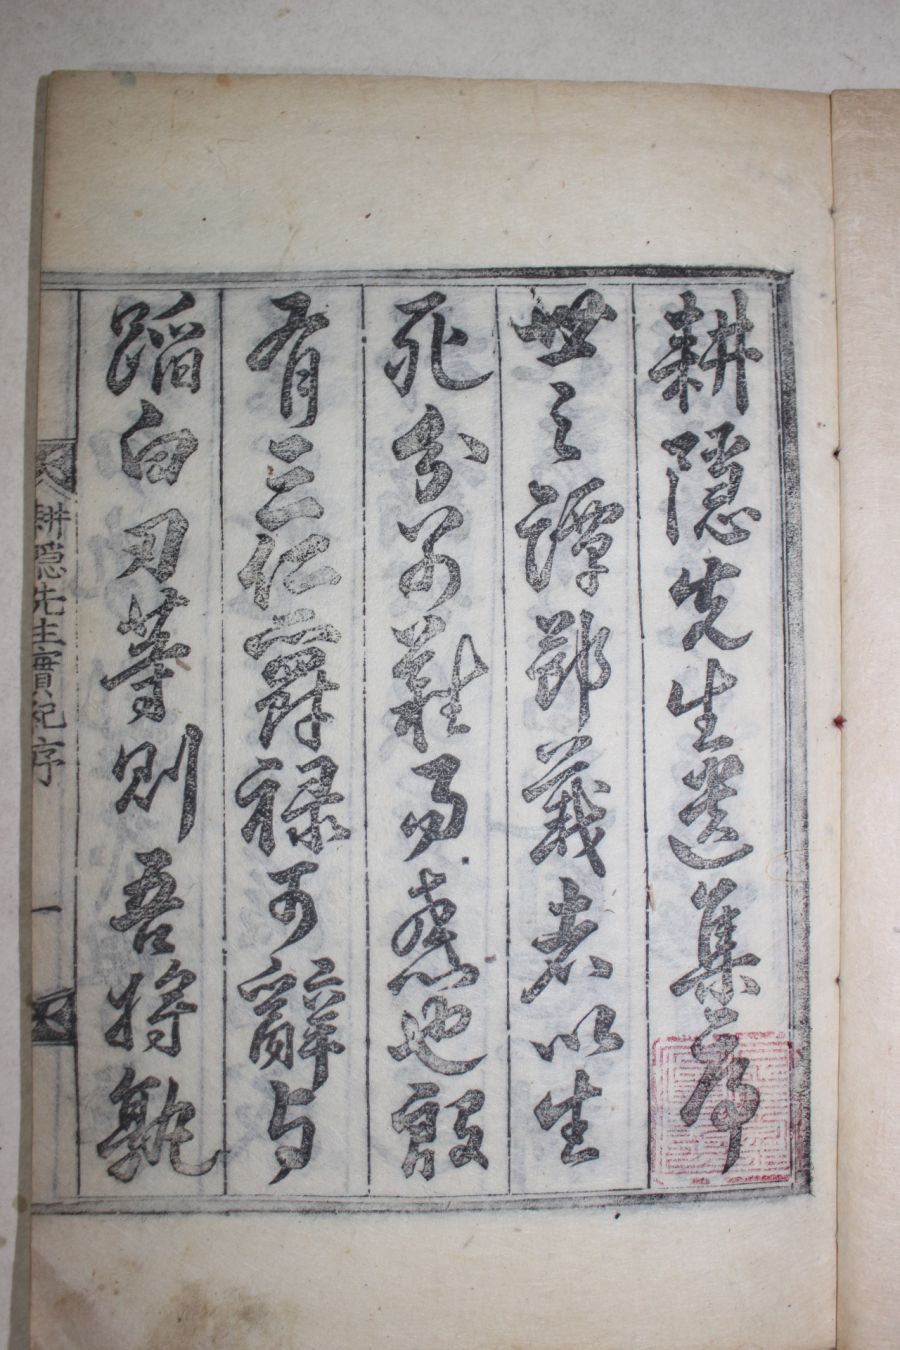 耕隱先生遺集序
世之譚節義者以生
死分名難易惑也殷
有三仁爵祿可辭與
蹈白刃等則吾將孰
耕隱先生實紀序 一